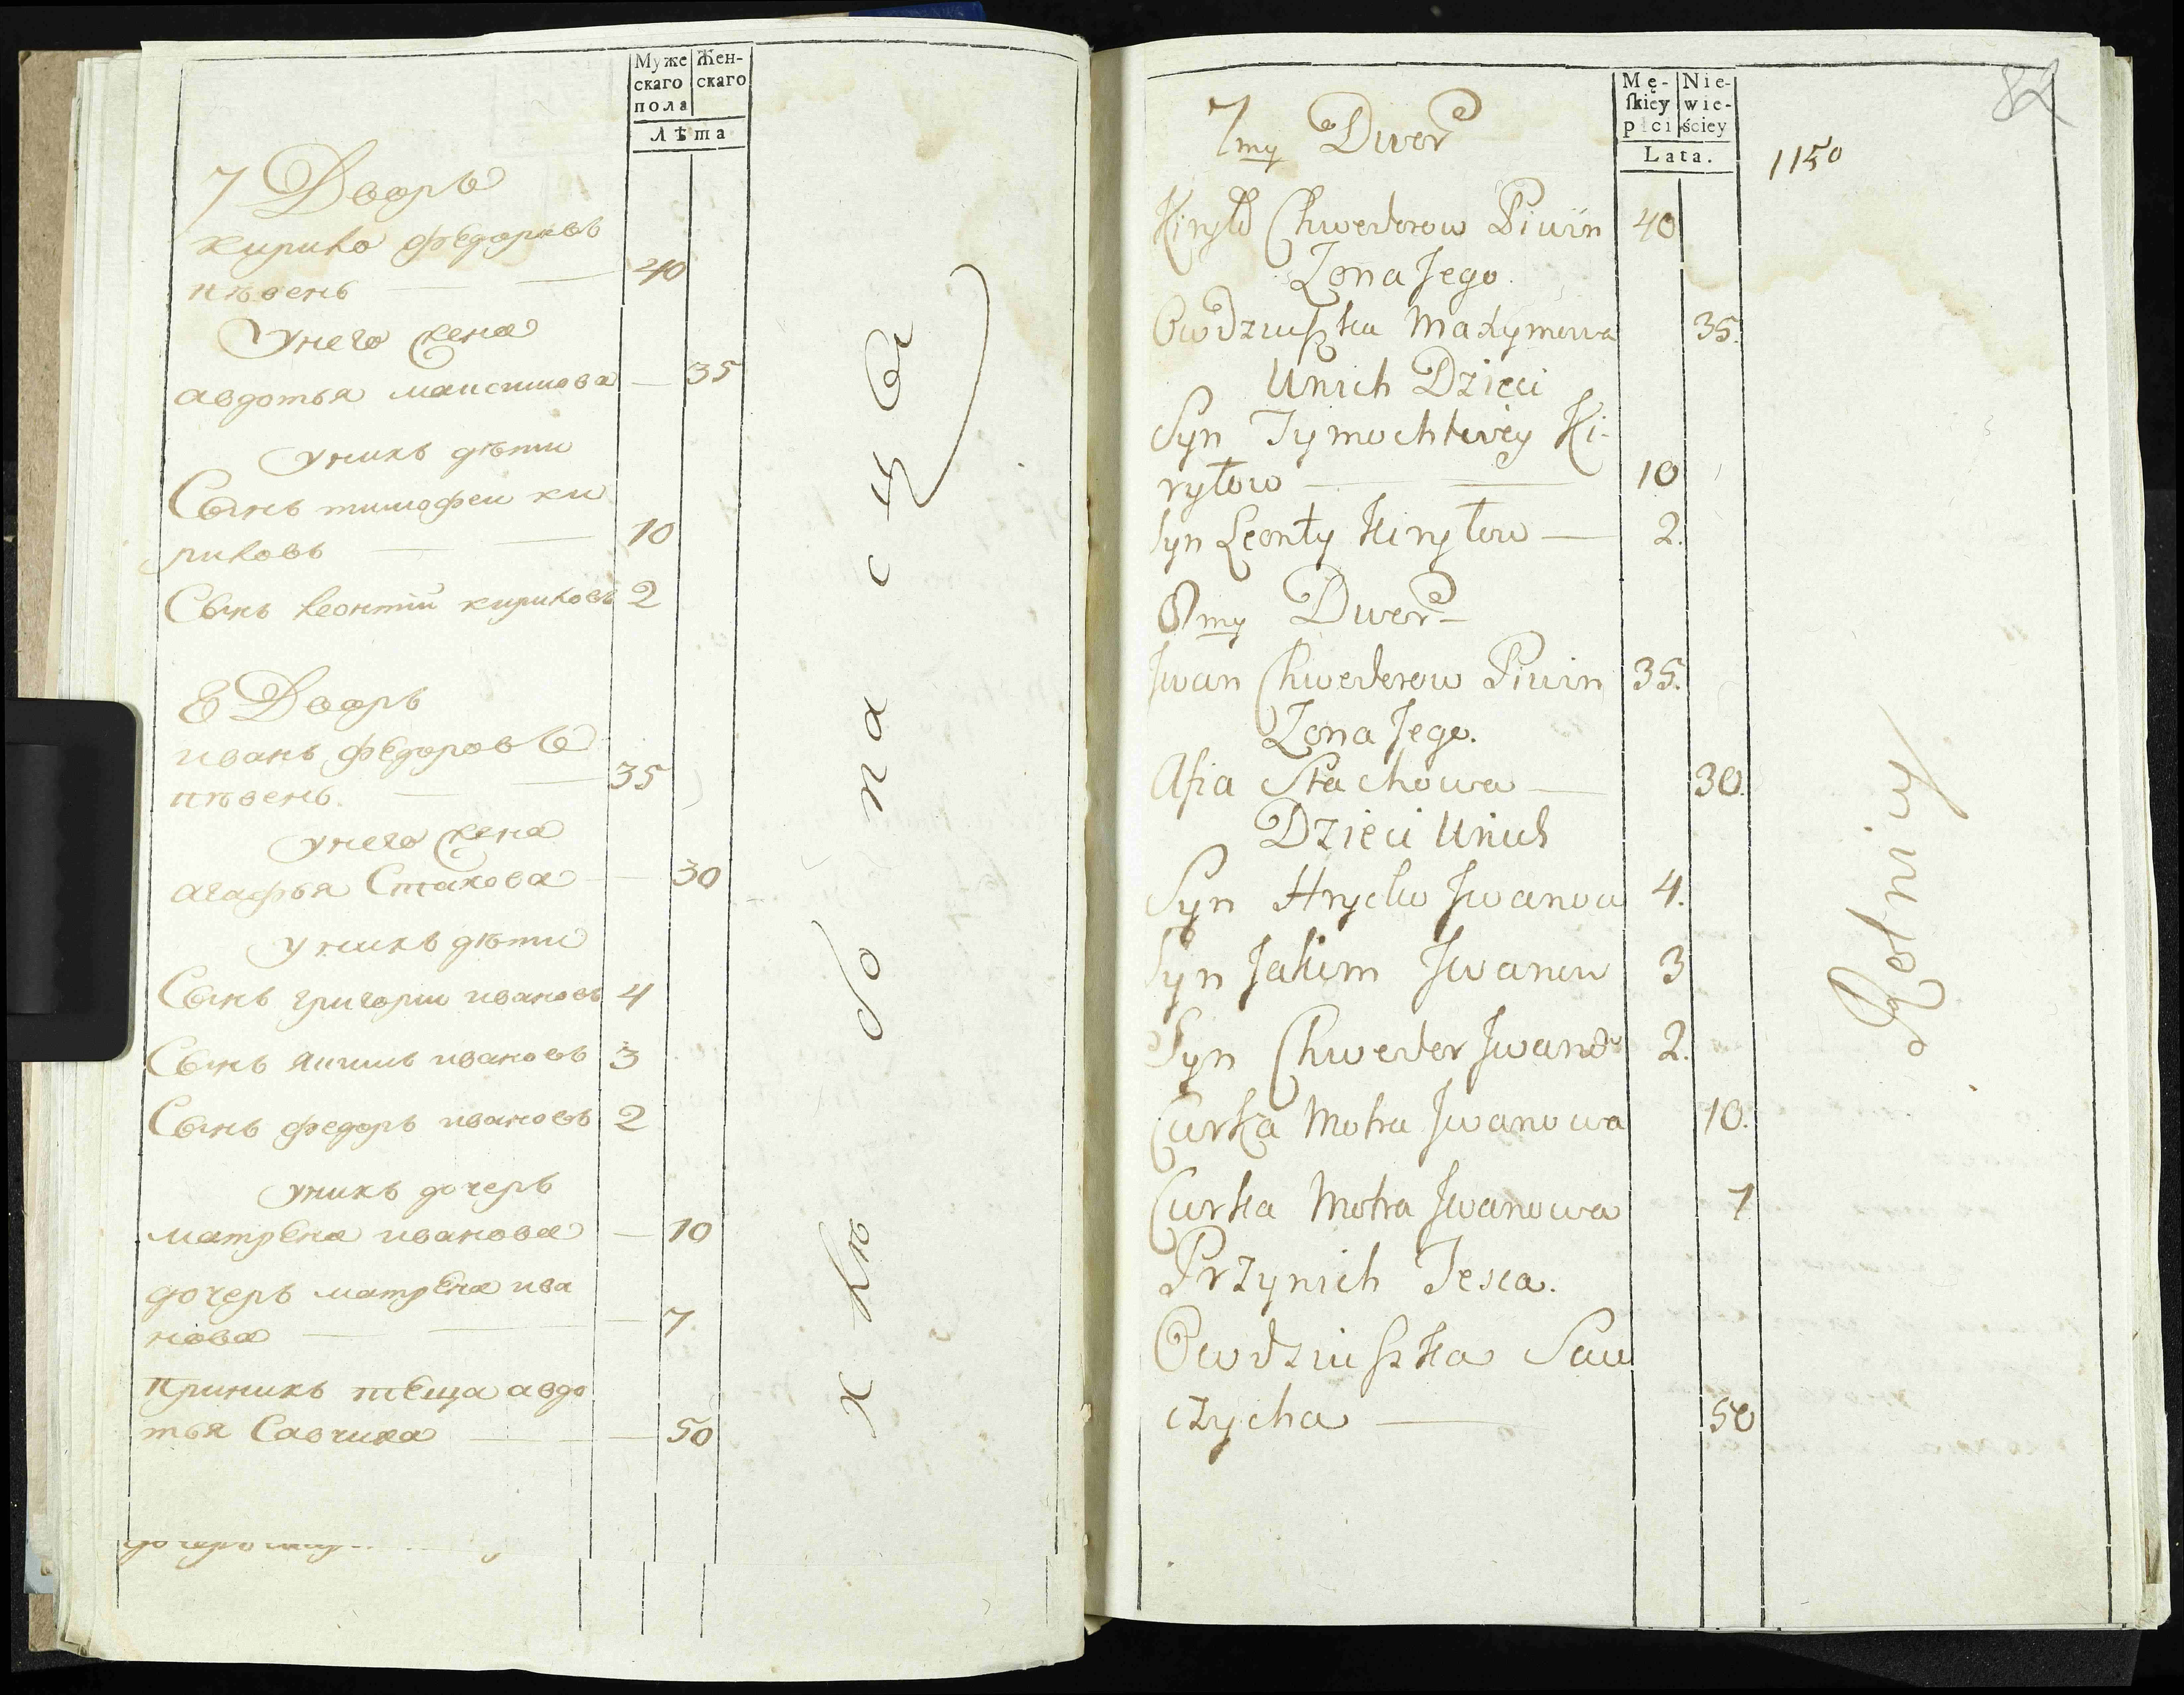 Муже Жен-
скаго скаго
пола
Лѣта
7 Дворъ
кирило федоровъ
пѣвень — — 40
Унего жена
авдотья максимова — 35
унихъ дѣти
Сынъ тимофеи ки
риловъ — — 10
Сынъ леонтіи кириловъ 2
8 Дворъ
иванъ федоровъ
пѣвень. — — 35
унего жена
агафья Стахова — 30
унихъ дѣти
Сынъ григории ивановъ 4
Сынъ якимъ ивановъ 3
Сынъ федоръ ивановъ 2
унихъ дочеръ
матрена иванова — 10
дочеръ матрена ива
нова — — 7
принихъ теща авдо
тья Савчиха — — 50
хлѣбопасцы
Mę- Nie-
skiey wie-
płci ściey
Lata.
82
1150
7my Dwor
Kiryło Chwederow Piwin 40
Zona Jego.
Owdziuszka Maxymowa 35.
Unich Dzieci
Syn Tymochwiey Ki-
ryłow — — 10
Syn Leonty Kiryłow — 2.
8my Dwor
Jwan Chwederow Piwin 35.
Zona Jego.
Afia Stachowa — 30.
Dzieci Unich
Syn Hryćko Jwanow 4.
Syn Jakim Jwanow 3
Syn Chweder Jwanow 2.
Curka Motra Jwanowa 10.
Curka Motra Jwanowa 7
Przynich Tesca.
Owdziuszka Saw
czycha — 50
Rolnicy